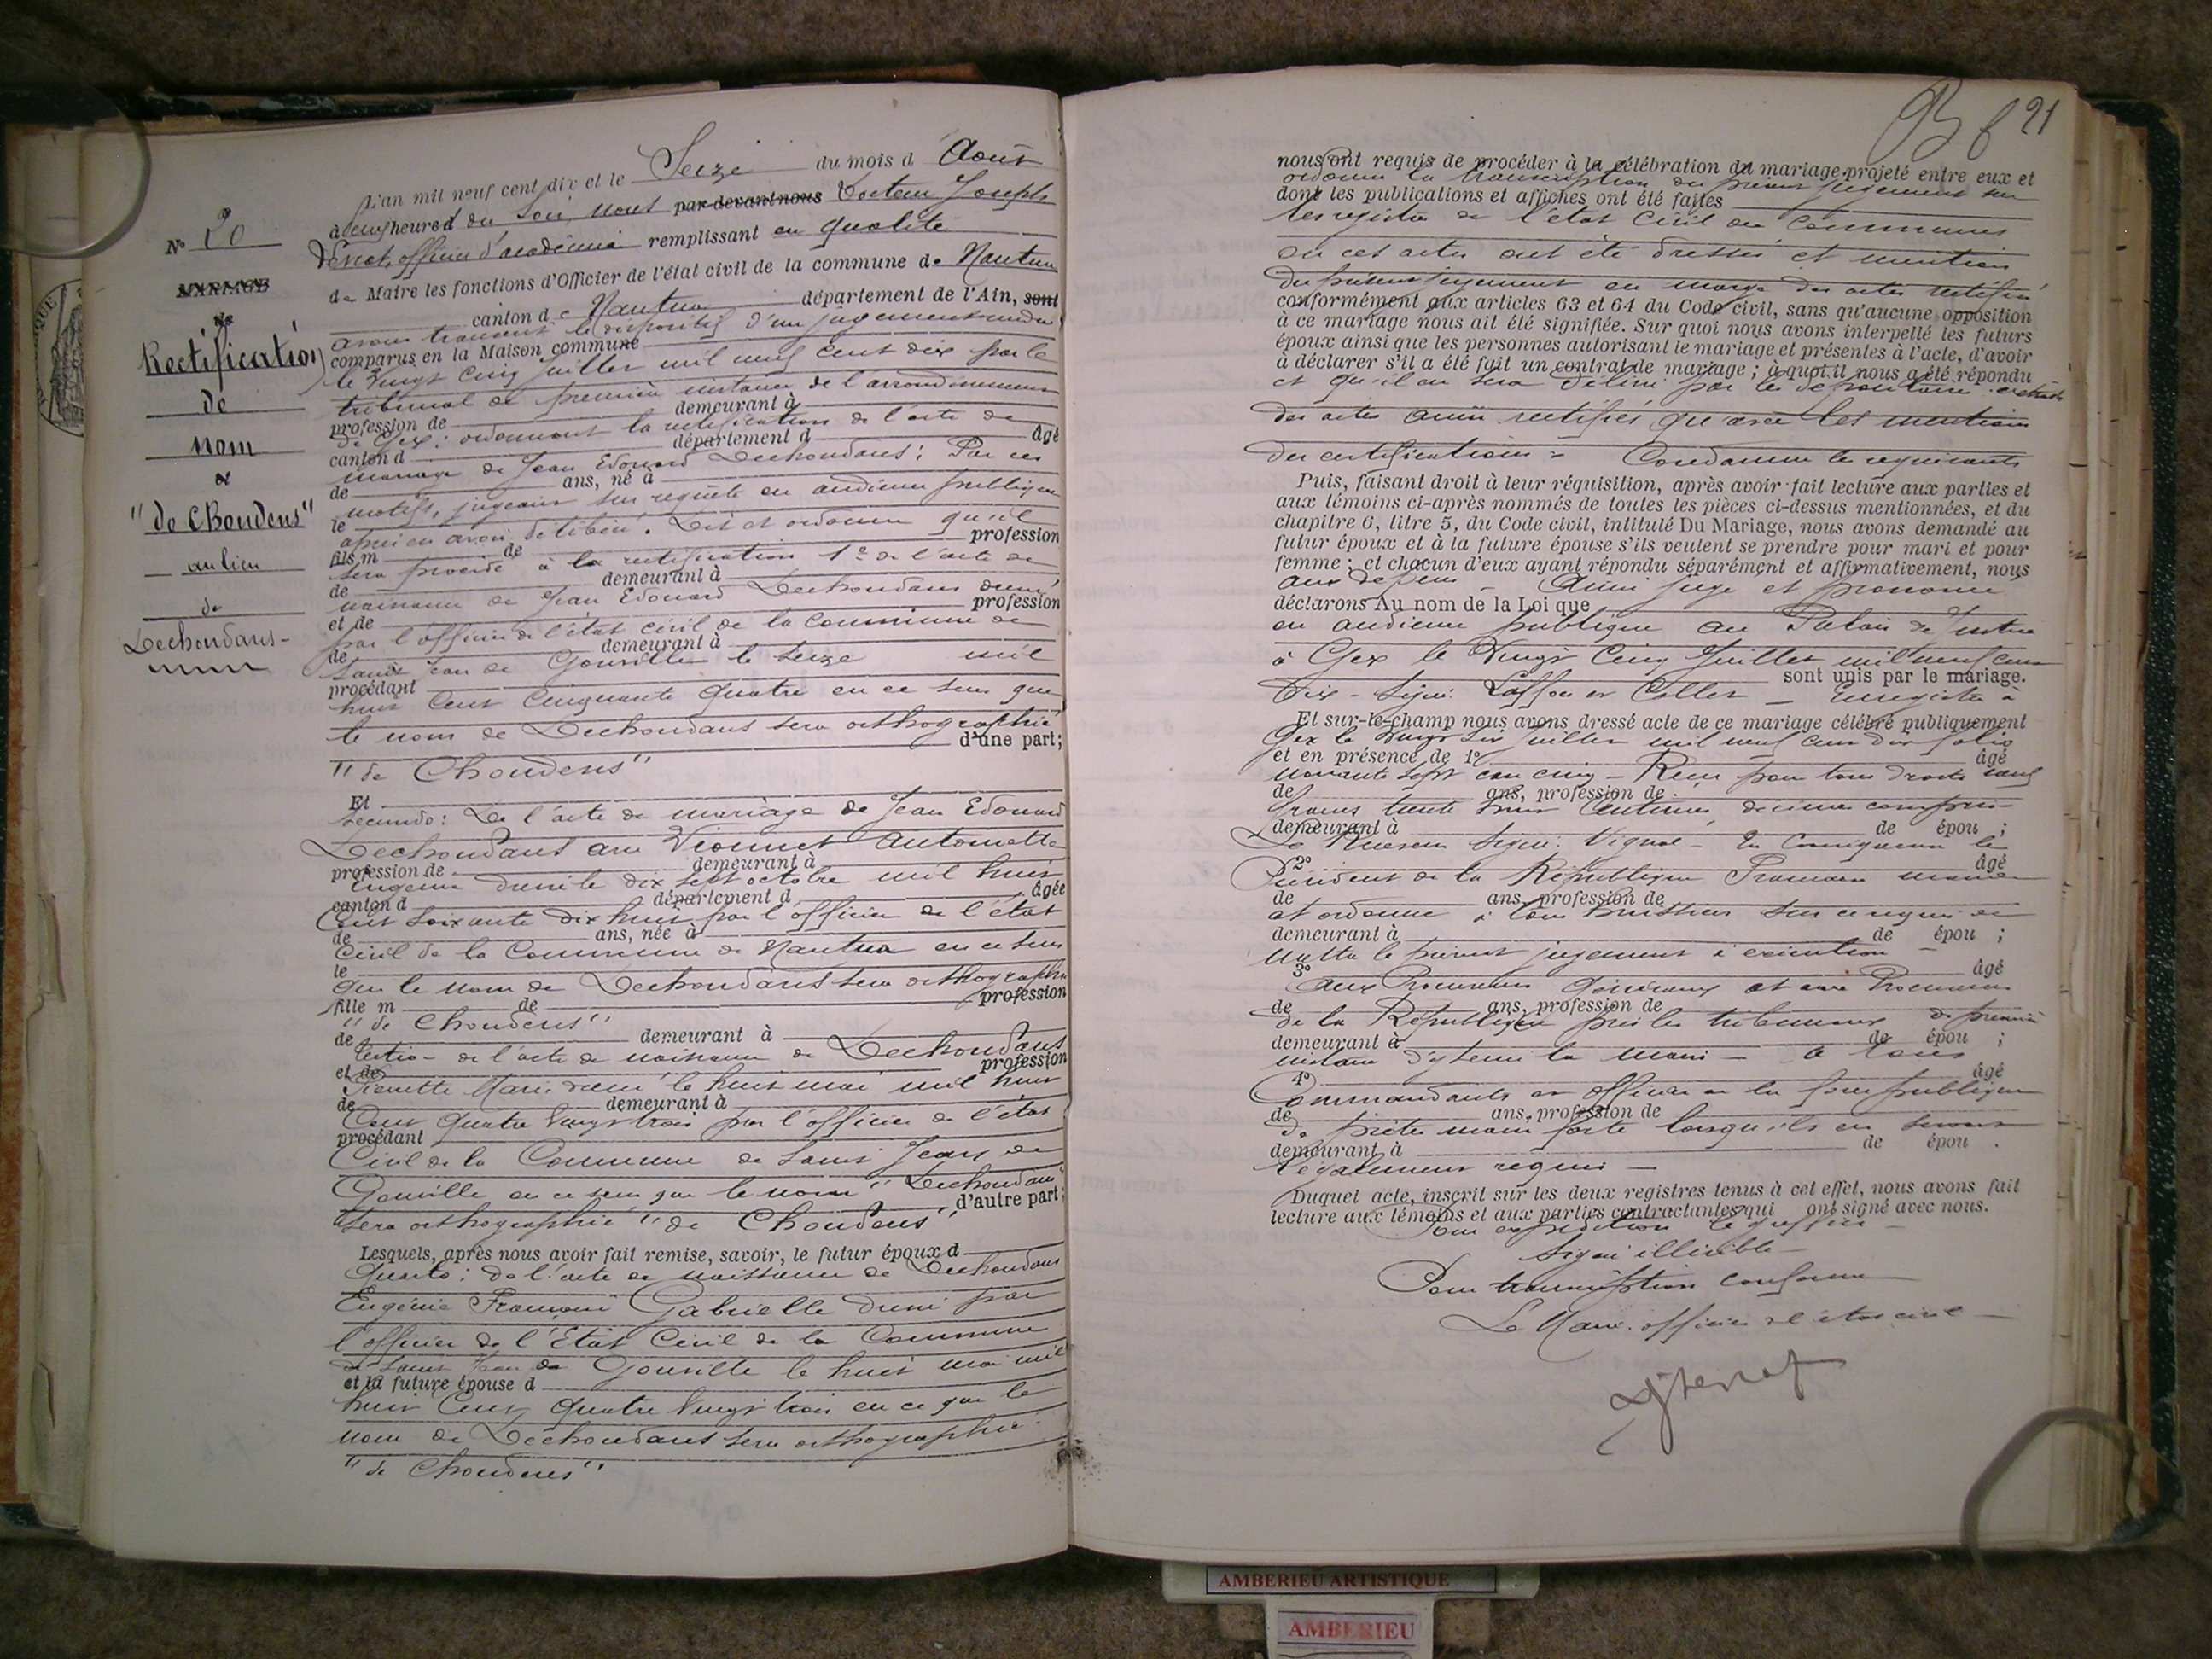 L'an mil neuf cent dix et le Seize du mois d'Août
à heures du soir, nous par devant nous Docteur Joseph
officier d'académie remplissant en qualité
de Maire les fonctions d'Officier de l'état civil de la commune de Nantua
canton de Nantua département de l'Ain, sont
avons transcrit le dispositif d'un jugement rendu
comparus en la Maison commune
le Vingt Cinq Juillet mil neuf cent dix par le
tribunal de première instance de l'arrondissement
profession de demeurant à
de Gex: ordonnant la rectification de l'acte de
canton d département d âgé
mariage de Jean Edouard Dechoudans: Par ces
de ans, né à
motifs, jugeant sur requête en audience publique
le
après en avoir délibéré. Dit et ordonne qu'il
fils m de profession
sera procédé à la rectification 1º de l'acte de
de demeurant à
naissance de Jean Edouard Dechoudans dressé
et de profession
par l'officier de l'état civil de la Commune de
de demeurant à
Saint Jean de Gonville le seize mil
procédant
huit Cent Cinquante quatre en ce sens que
le nom de Dechoudans sera orthographié
d'une part;
"de Choudens"
Et
Secundo: De l'acte de mariage de Jean Edouard
Dechoudans avec Vionnet Antoinette
profession de demeurant à
Eugénie dressé le dix sept octobre mil huit
canton d département d âgée
Cent soixante dix huit par l'officier de l'état
de ans, née à
Civil de la Commune de Nantua en ce sens
le
que le nom de Dechoudans sera orthographié
fille m de profession
"de Choudens"
de demeurant à
Tertio - de l'acte de naissance de Dechoudans
et de profession
Pierrette Marie dressé le huit mai mil huit
de demeurant à
Cent Quatre Vingt trois par l'officier de l'état
procédant
Civil de la Commune de Saint Jean de
Gonville en ce sens que le nom "Dechoudans
d'autre part;
sera orthographié "de Choudens"
Lesquels, après nous avoir fait remise, savoir, le futur époux d
Quarto: de l'acte de naissance de Dechoudans
Eugénie Françoise Gabrielle dressé par
l'officier de l'Etat Civil de la Commune
de Saint Jean de Gonville le huit mai mil
et la future épouse d
huit Cent Quatre Vingt trois en ce que le
nom de Dechoudans sera orthographié
"de Choudens"
Nº 20
MARIAGE
de
Rectification
de
nom
"de Choudens"
au lieu
de
Dechoudans-
21
nous ont requis de procéder à la célébration du mariage projeté entre eux et
ordonne la transcription du présent jugement sur
dont les publications et affiches ont été faites
les registres de l'état Civil des Communes
où ces actes ont été dressés et mention
du présent jugement en marge des actes rectifiés
conformément aux articles 63 et 64 du Code civil, sans qu'aucune opposition
à ce mariage nous ait été signifiée. Sur quoi nous avons interpellé les futurs
époux ainsi que les personnes autorisant le mariage et présentes à l'acte, d'avoir
à déclarer s'il a été fait un contrat de mariage; à quoi il nous a été répondu
et qu'il ne sera délivré par les dépositaires extraits
des actes ainsi rectifiés qu'avec les mentions
des certifications = Condamne les requérants
Puis, faisant droit à leur réquisition, après avoir fait lecture aux parties et
aux témoins ci-après nommés de toutes les pièces ci-dessus mentionnées, et du
chapitre 6, titre 5, du Code civil, intitulé Du Mariage, nous avons demandé au
futur époux et à la future épouse s'ils veulent se prendre pour mari et pour
femme; et chacun d'eux ayant répondu séparément et affirmativement, nous
aux dépens - Ainsi jugé et prononcé
déclarons Au nom de la Loi que
en audience publique au Palais de Justice
à Gex le Vingt Cinq Juillet mil neuf cent
sont unis par le mariage.
Dix - Signé: Laffon et Coller - Enregistré à
Et sur-le-champ nous avons dressé acte de ce mariage célébré publiquement
Gex le Vingt six Juillet mil neuf cent dix folio
et en présence de 1º âgé
nonante sept case cinq - Reçu pour tous droits neuf
de ans, profession de
francs trente huit Centimes, décimes compris
demeurant à de épou ;
Le Receveur Signé: Vignal - En Conséquence le
2º âgé
Président de la République Française mande
de ans, profession de
et ordonne à tous huissiers sur ce requis de
demeurant à de épou ;
mettre le présent jugement à exécution -
3º âgé
aux Procureurs Généraux et aux Procureurs
de ans, profession de
de la République près les tribunaux de première
demeurant à de épou ;
instance d'y tenir la main - à tous
4º âgé
Commandants et officiers de la force publique
de ans, profession de
de prêter main forte lorsqu'ils en seront
demeurant à de épou .
légalement requis -
Duquel acte, inscrit sur les deux registres tenus à cet effet, nous avons fait
lecture aux témoins et aux parties contractantes qui ont signé avec nous.
Pour expédition le greffier -
Signé illisible -
Pour transcription conforme
Le Maire officier de l'état civil -
AMBERIEU ARTISTIQUE
AMBERIEU